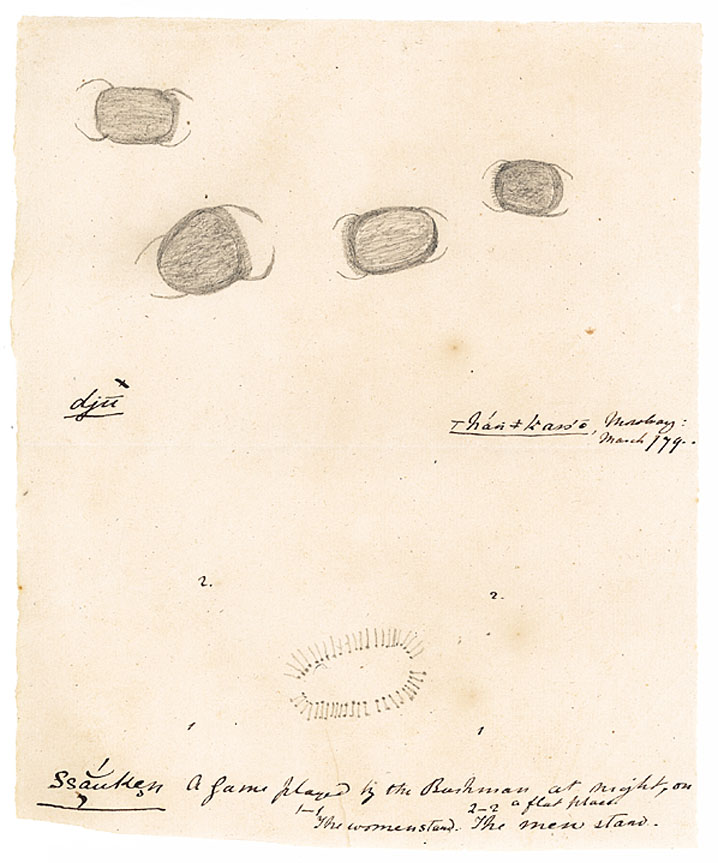 djū ×
ǀháṅǂkass'ō, Mowbray:
March /79.
2.
2.
1
1
Ssăuken A Game played by the Bushman at night, on
a flat place.
1–1 The women stand. 2–2 The men stand.